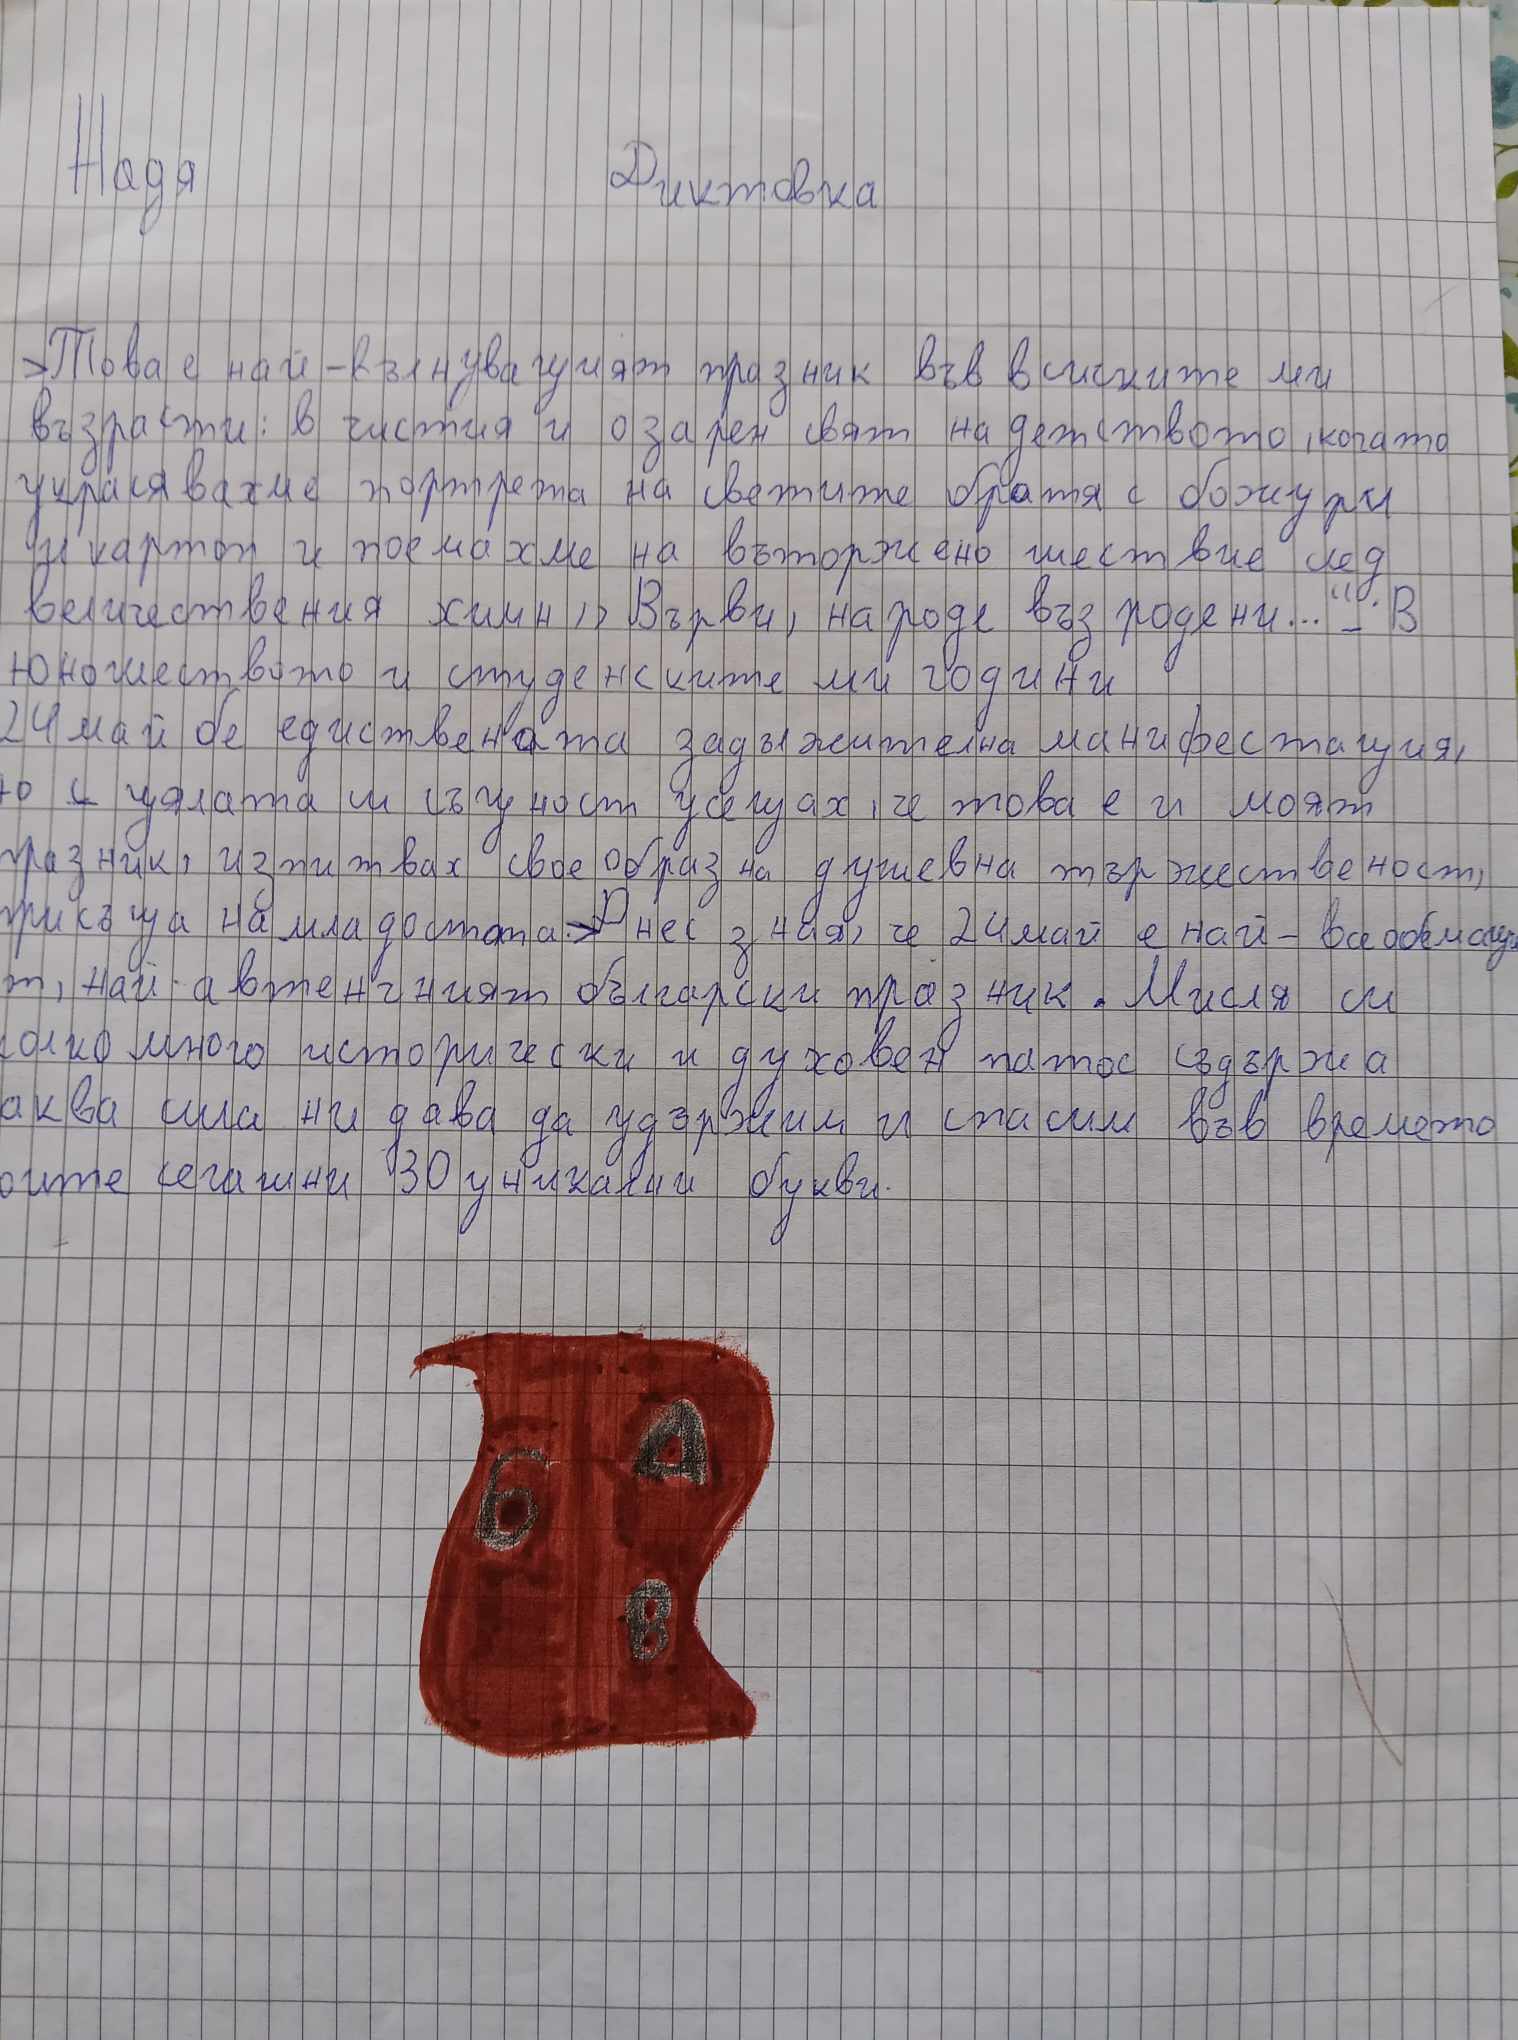 Надя Диктовка
Това е най-вълнуващият празник във всичките ми
възрасти: в чистия и озарен свят на детството, когато
украсявахме портрета на светите братя с божури
и картоп и поемахме на въторжено шествие след
величествения химн,, Върви, народе възродени..." В
юношеството и студенските ми години
24 май бе едиствената задължителна манифестация,
но с цялата си същност усещах, че това е и моят
празник, изпитвах своеобразна душевна тържественост,
присъща на младостта. Днес зная, че 24 май е най-
т, най-автентичният български празник. Мисля си
колко много исторически и духовен патос съдържа
аква сила ни дава да удържим и спасим във времето
оите сегашни 30 уникални букви.
А
Б
В